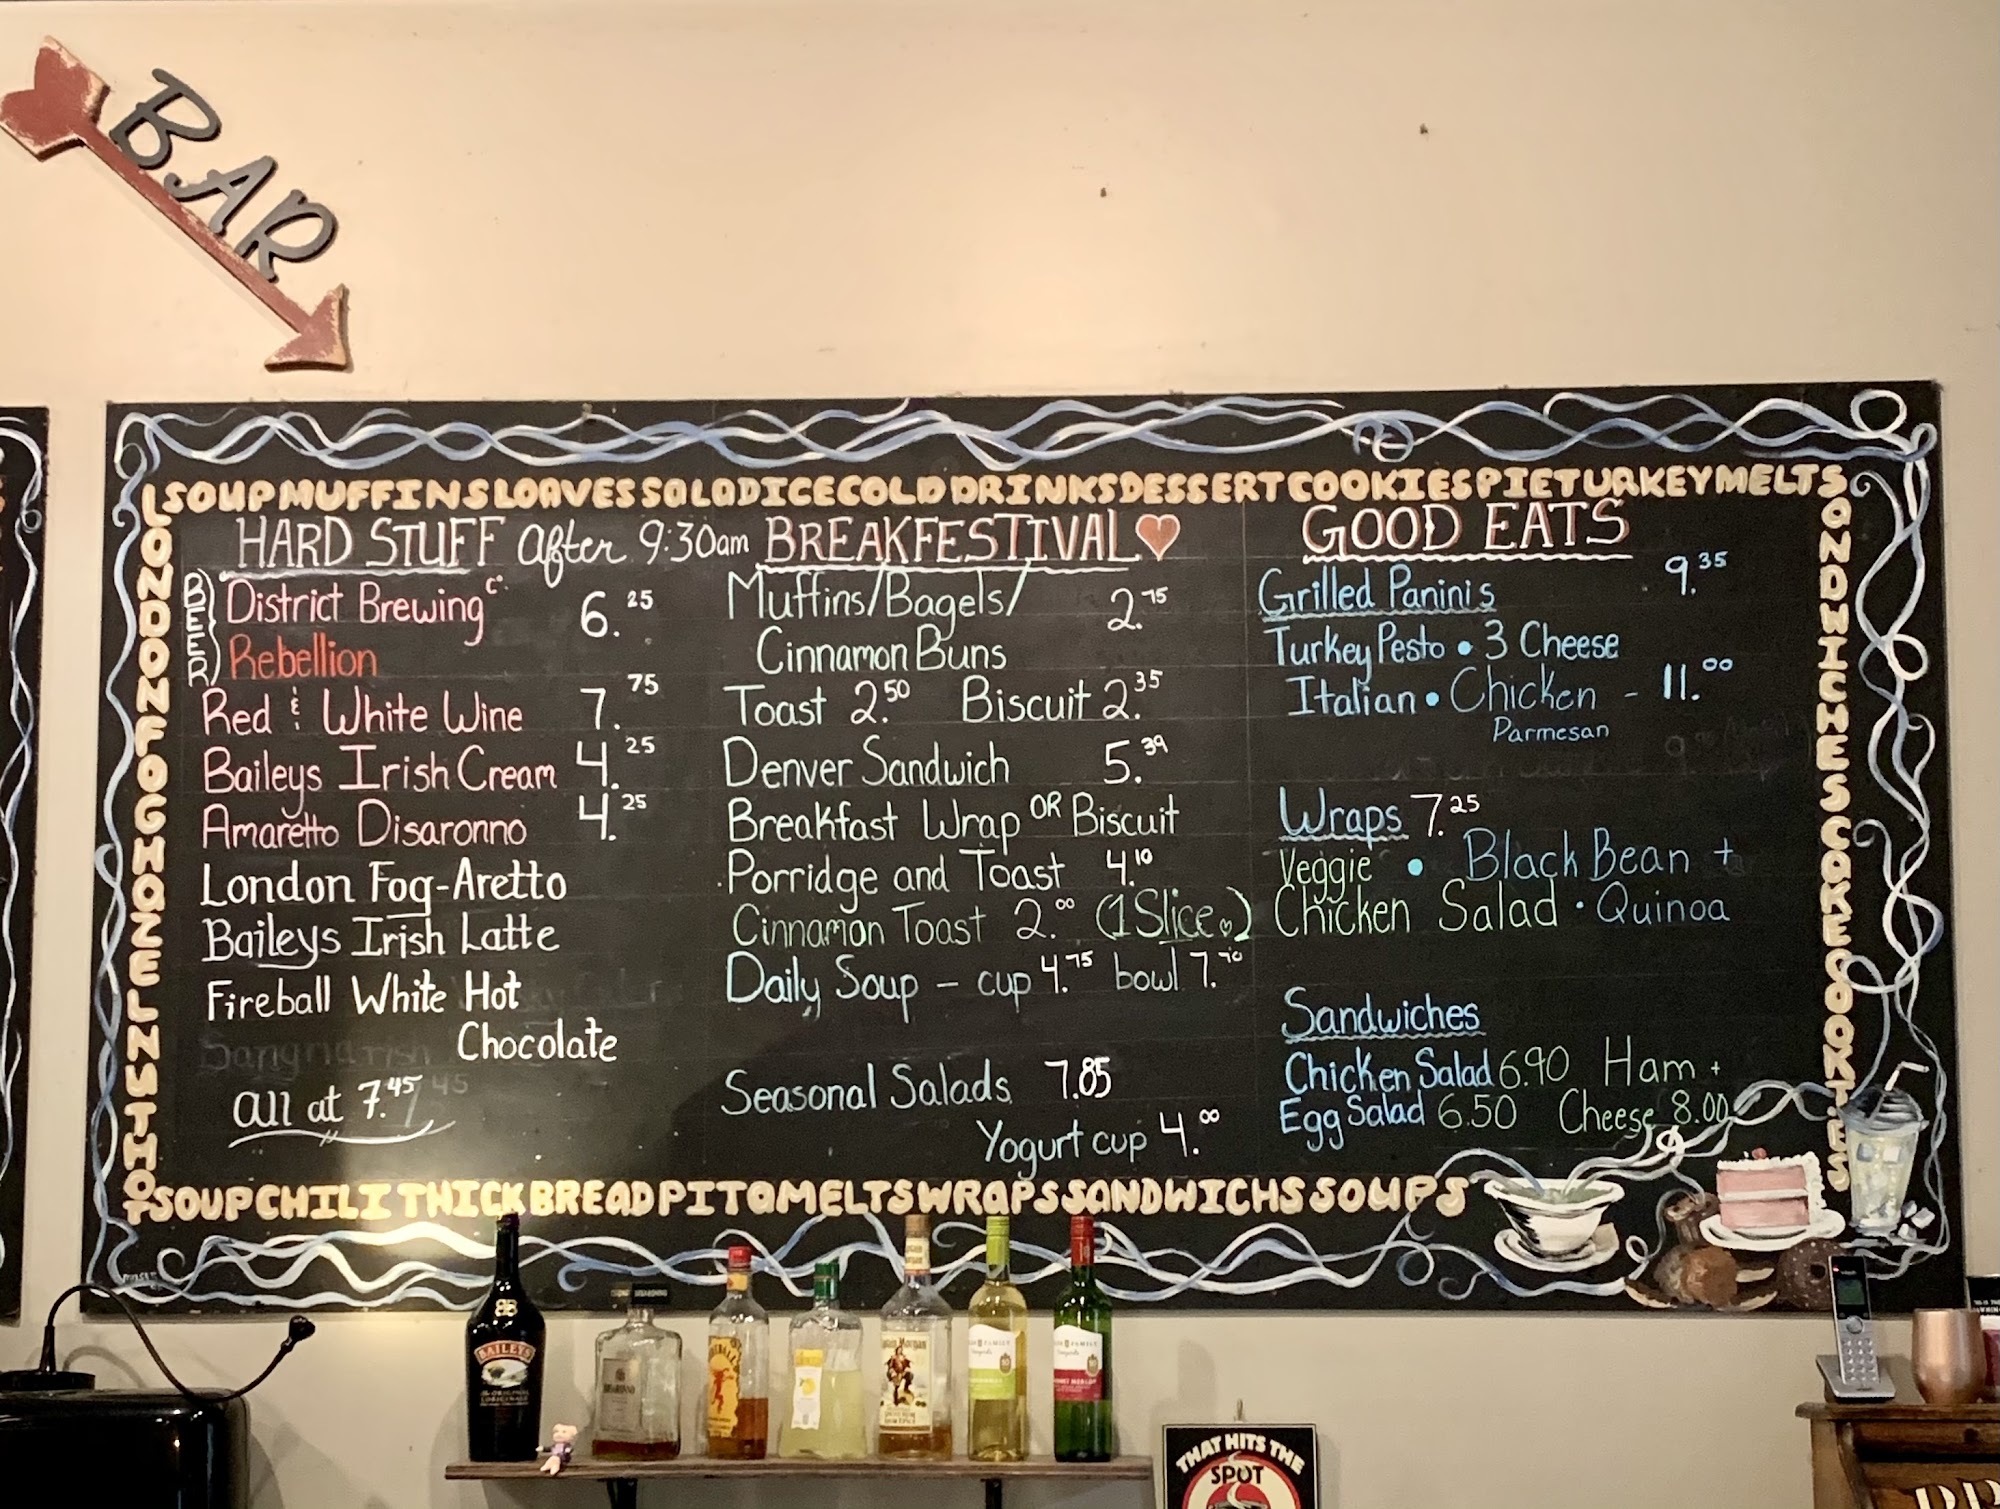 BAR
SOUPMUFFINSLOAVESSALADICECOLDDRINKSDESSERTCOOKIESPIETURKEYMELTS
LONDONFOGHAZELNUTHOT
HARD STUFF After 9:30am
BEER
District Brewing Co. 6.25
Rebellion
Red & White Wine 7.75
Baileys Irish Cream 4.25
Amaretto Disaronno 4.25
London Fog-Aretto
Baileys Irish Latte
Fireball White Hot
Chocolate
All at 7.45
BREAKFESTIVAL
Muffins/Bagels/ 2.75
Cinnamon Buns
Toast 2.50 Biscuit 2.35
Denver Sandwich 5.39
Breakfast Wrap OR Biscuit
Porridge and Toast 4.10
Cinnamon Toast 2.00 (1 Slice)
Daily Soup – cup 4.75 bowl 7.10
Seasonal Salads 7.85
Yogurt cup 4.00
GOOD EATS
Grilled Panini's 9.35
Turkey Pesto • 3 Cheese
Italian • Chicken - 11.00
Parmesan
Wraps 7.25
Veggie • Black Bean +
Chicken Salad • Quinoa
Sandwiches
Chicken Salad 6.90 Ham +
Egg Salad 6.50 Cheese 8.00
SANDWICHESCAKECOOKIES
SOUPCHILITHICKBREADPITAMELTSWRAPSSANDWICHSSOUPS
BAILEYS
THE ORIGINAL
FIREBALL
Captain Morgan
THAT HITS THE
SPOT